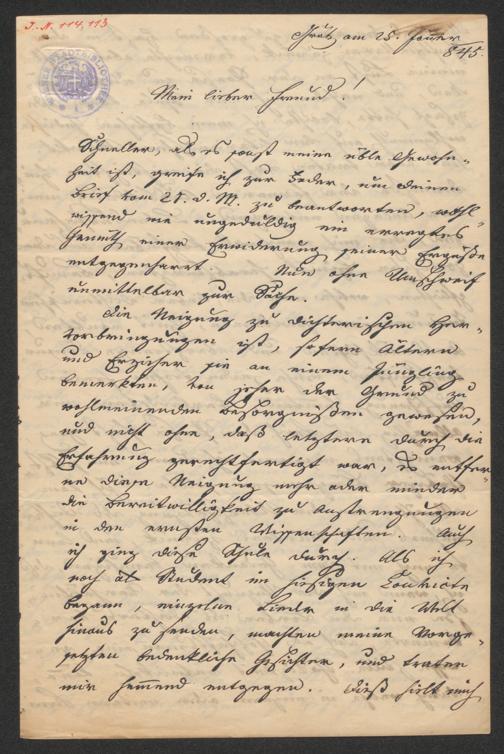 J. N. 114,113
Grätz am 25. Jänner
845.
Mein lieber Freund!
Schneller, als es sonst meine üble Gewohn-
heit ist, greife ich zur Feder, um deinen
Brief vom 21. d. M. zu beantworten, wohl
wissend wie ungeduldig ein erregtes
Gemüth einer Erwiderung seiner Ergüße
entgegenharrt. Nun ohne Umschweif
unmittelbar zur Sache.
Die Neigung zu dichterischen Her-
vorbringungen ist, sofern Ältern
und Erzieher sie an einem Jüngling
bemerkten, von jeher der Grund zu
wohlmeinenden Besorgnißen gewesen,
und nicht ohne, daß letztere durch die
Erfahrung gerechtfertigt war, es entfer-
ne diese Neigung mehr oder minder
die Bereitwilligkeit zu Anstrengungen
in den ernsten Wissenschaften. Auch
ich ging diese Schule durch. Als ich
noch als Student im hiesigen Convicte
begann, einzelne Lieder in die Welt
hinaus zu senden, machten meine Vorge-
setzten bedenkliche Gesichter, und traten
mir hemmend entgegen. Dieß hielt mich